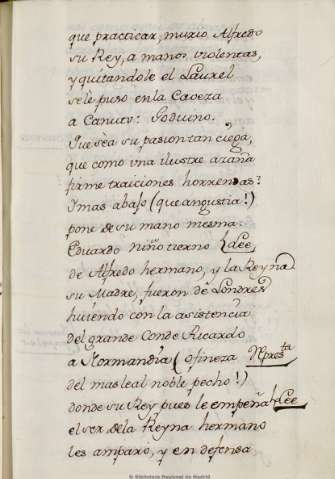 que practicar, murio Alfredo
su Rey, a manos violentas,
y quitandole el Laurel
sele puso enla Caveza
a Canuto: Godueno.
Que sea su pasion tan ciega,
que como una ilustre azaña
firme traiciones horrendas?
Y mas abajo (que angustia!)
pone de su mano mesma:
Eduardo niño tierno Lee
de Alfredo hermano, y la Reyna
su Madre, fueron de Londres
huiendo con la asistencia
del grande Conde Ricardo
a Normandia (o fineza Repres.ta
del mas leal noble pecho!)
donde su Rey pues le empeña Lee
el ser dela Reyna hermano
les amparo, y en defensa
© Biblioteca Nacional de Madrid